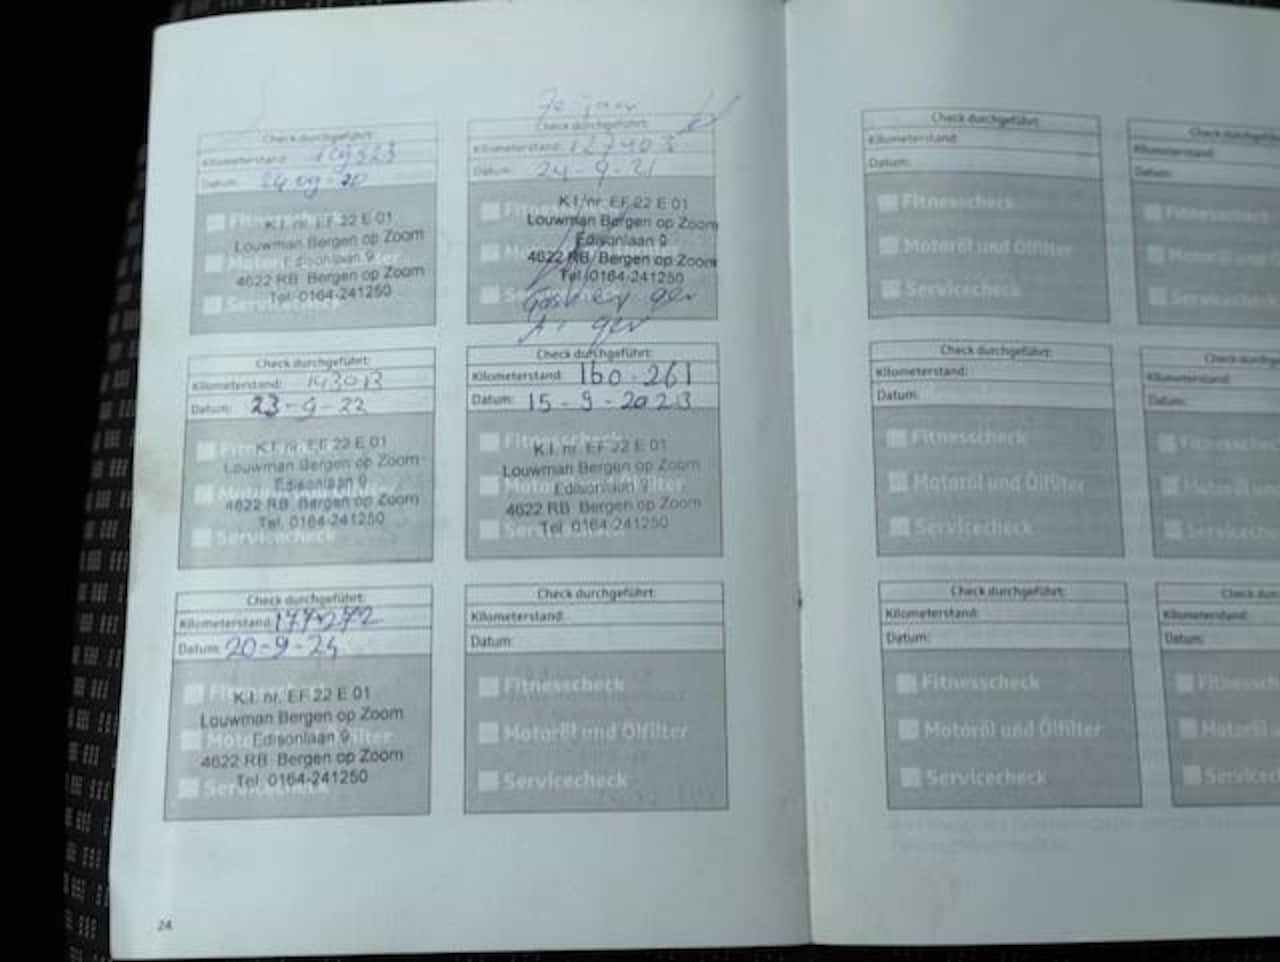 7e jaar
Check durchgeführt:
Kilometerstand: 109523
Datum: 24-09-20
Fitnesscheck
K.I. nr. EF 22 E 01
Louwman Bergen op Zoom
Edisonlaan 9
4622 RB Bergen op Zoom
Tel. 0164-241250
Servicecheck
Check durchgeführt:
Kilometerstand: 127403
Datum: 24-9-21
K.I. nr. EF 22 E 01
Louwman Bergen op Zoom
Edisonlaan 9
4622 RB Bergen op Zoom
Tel. 0164-241250
Check durchgeführt:
Kilometerstand: 143013
Datum: 23-9-22
K.I. nr. EF 22 E 01
Louwman Bergen op Zoom
Edisonlaan 9
4622 RB Bergen op Zoom
Tel. 0164-241250
Servicecheck
Check durchgeführt:
Kilometerstand: 160.261
Datum: 15-9-2023
Fitnesscheck
K.I. nr. EF 22 E 01
Louwman Bergen op Zoom
Edisonlaan 9
4622 RB Bergen op Zoom
Tel. 0164-241250
Servicecheck
Check durchgeführt:
Kilometerstand:
Datum: 20-9-24
K.I. nr. EF 22 E 01
Louwman Bergen op Zoom
Edisonlaan 9
4622 RB Bergen op Zoom
Tel. 0164-241250
Servicecheck
Check durchgeführt:
Kilometerstand:
Datum:
Fitnesscheck
Motoröl und Ölfilter
Servicecheck
24
Check durchgeführt:
Kilometerstand:
Datum:
Fitnesscheck
Motoröl und Ölfilter
Servicecheck
Check durchgeführt
Kilometerstand:
Datum:
Fitnesscheck
Motoröl und
Servicecheck
Check durchgeführt:
Kilometerstand:
Datum:
Fitnesscheck
Motoröl und Ölfilter
Servicecheck
Check durchge
Kilometerstand:
Datum:
Fitnesscheck
Motoröl und
Servicecheck
Check durchgeführt:
Kilometerstand:
Datum:
Fitnesscheck
Motoröl und Ölfilter
Servicecheck
Check dur
Kilometerstand:
Datum:
Fitnessch
Motoröl
Servicec